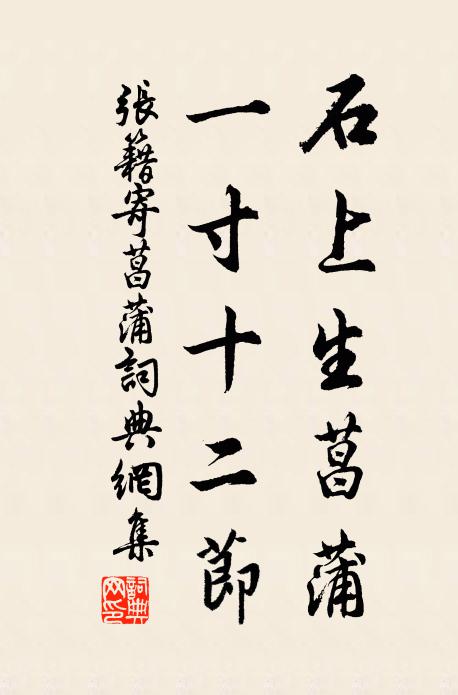 石上生菖蒲
一寸十二節
張籍寄菖蒲詞典網集
詞典网印